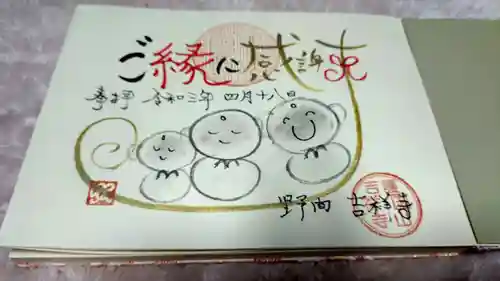 ご縁に感謝
奉拝 令和三年 四月十八日
野間 吉祥寺